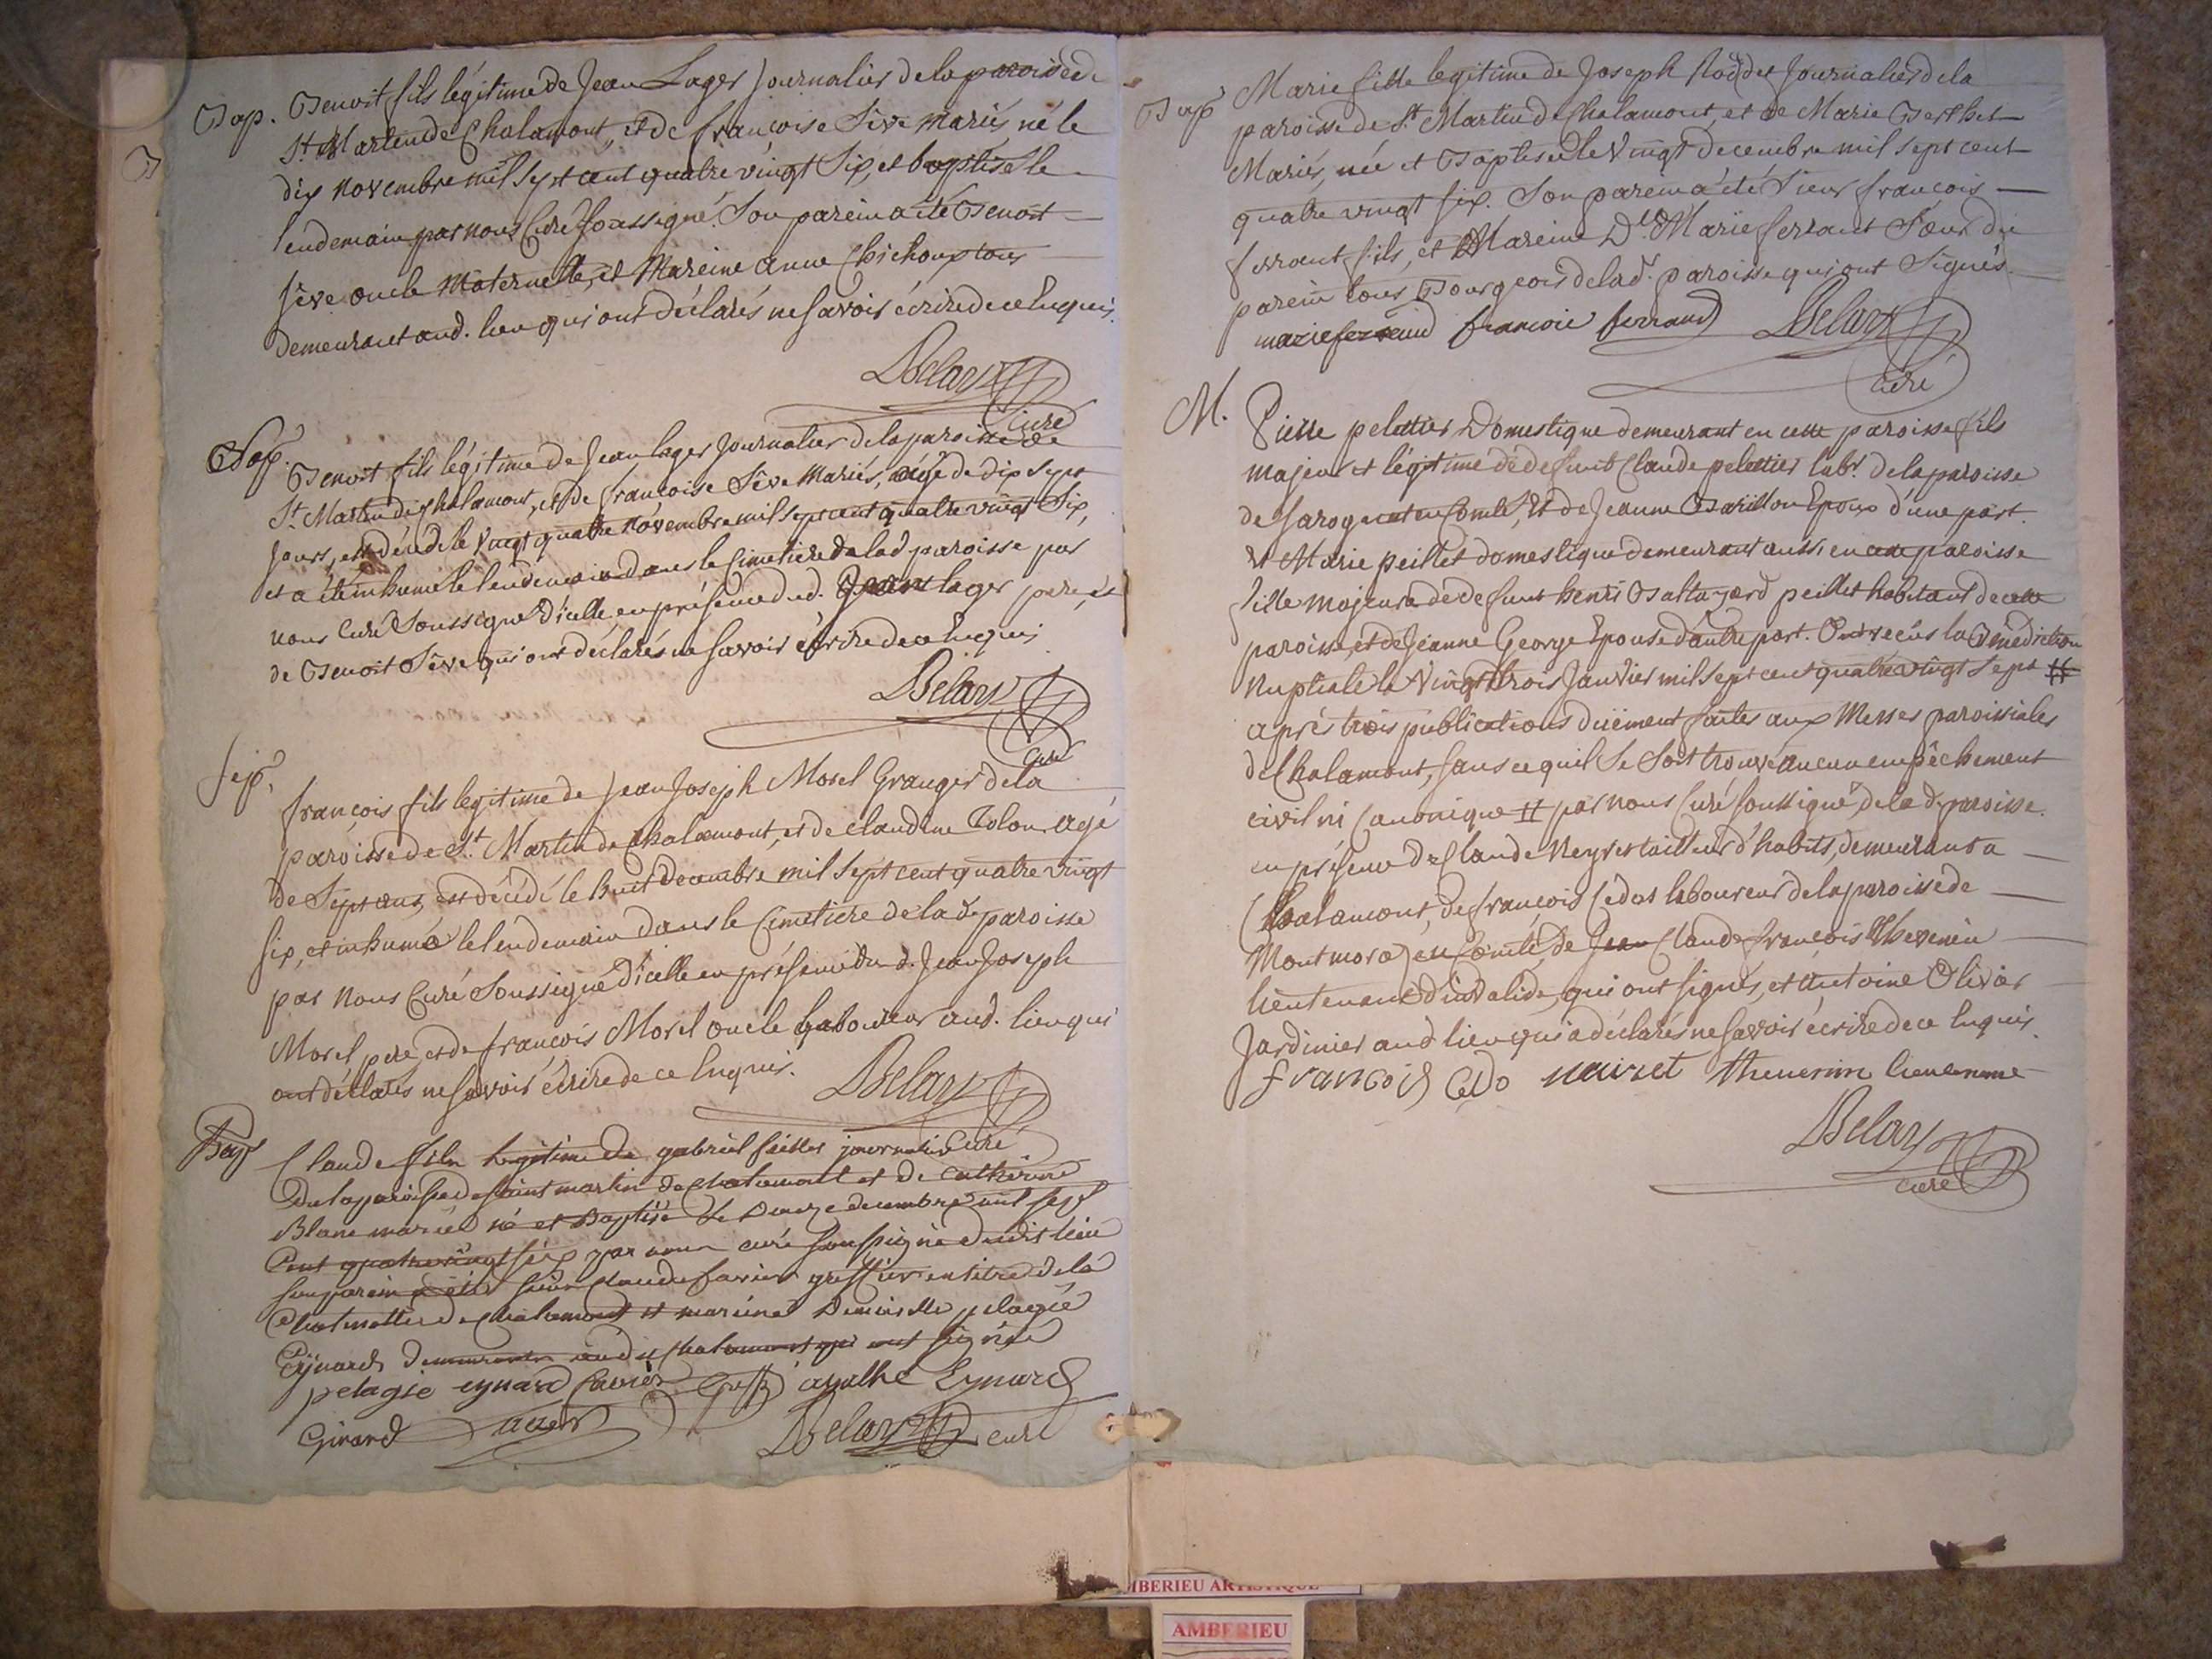 Bap. Benoit fils légitime de Jean Lager Journalier de la paroisse de
St Martin de Chalamont, et de françoise Sève Mariés né le
dix novembre mil sept cent quatre vingt Six, et baptisé le
lendemain par nous Curé soussigné. Son parein a été Benoit
Sève oncle Maternelle, et Mareine anne Chichoux tous
demeurant aud. lieu qui ont déclarés ne savoir écrire de ce Enquis.
Delary
Curé
Benoit fils légitime de Jean lager Journalier de la paroisse de
St. Martin de Chalamont, et de françoise Sève Mariés, âgé de dix sept
Jours, est décédé le Vingt quatre Novembre mil sept cent quatre vingt Six,
et a été inhumé le lendemain dans le Cimetiere de lad paroisse par
nous Curé Soussigné D'icelle en présence dud. Jean lager pere, et
de Benoit Sève qui ont déclarés ne savoir écrire de ce Enquis
Delary
Curé
Sep.
françois fils legitime de Jean Joseph Morel Granger de la
paroisse de St. Martin de Chalamont, et de Claudine Tolon. agé
de Sept ans, est décédé le huit Decembre mil Sept cent quatre vingt
Six, et inhumé le lendemain dans le Cimetiere de la de. paroisse
par Nous Curé Soussigné D'icelle en présence du d. Jean Joseph
Morel pere, et de françois Morel oncle Laboureur aud. lieu qui
ont déclarés ne Savoir écrire de ce Enquis.
Delary
Curé
Bap Claude fils legitime de gabriel journalier
De la paroisse de saint martin de Chalamont et de catherine
Blanc mariés né et Baptisé le Douze decembre mil sept
Cent quatre vingt six par nous curé soussigné dudit lieu
Son parein a été sieur Claude favier greffier en titre de la
de Chalamont et mareine Demoiselle pelagie
Eynard demeurants aud. Chalamont qui ont signés
pelagie eynard favier Greff agathe Eynard
Girard
Delary curé
Bap Marie fille legitime de Joseph Journalier de la
paroisse de St. Martin de Chalamont, et de Marie Berthet
Mariés, née et Baptisée le Vingt decembre mil sept cent
quatre vingt six. Son parein a été Sieur françois
ferrant fils, et Mareine Dlle Marie ferrant Soeur du
parein tous Bourgeois de lad. paroisse qui ont Signés.
marie ferrand francois ferrand Delary
Curé
M. Pierre pelettier Domestique demeurant en cette paroisse fils
majeur et légitime de defunt Claude pelettier labr. de la paroisse
de en Comté, Et de Jeanne Barillon Epoux d'une part.
et Marie peillet domestique demeurant aussi en cette paroisse
fille Majeure de defunt henri Baltazard peillet habitant de cette
paroisse, et de Jeanne George Epouse d'autre part. Ont recus la Benediction
Nuptiale le Vingt trois Janvier mil sept cent quatre vingt Sept #
après trois publications duëment faites aux Messes paroissiales
de Chalamont, sans ce quil Se Soit trouvé aucun empêchement
civil ni Canonique # par nous Curé soussigné de la d. paroisse.
en présence de Claude Neyret tailleur d'habits, demeurant a
Chalamont, de françois Cedos laboureur de la paroisse de
Montmorot en Comté, de Jean Claude françois Thevenin
lieutenant d'invalide, qui ont signés, et Antoine Olivier
Jardinier aud lieu qui a déclarés ne Savoir écrire de ce Enquis.
francois Cedo nairet thevenin lieutenant
Delary
curé
AMBERIEU ARTISTIQUE
AMBERIEU